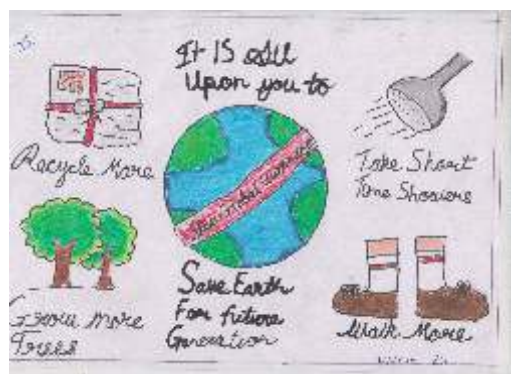 It IS All
Upon you to
Recycle More
Take Short
Time Showers
Grow more
Trees
Save Earth
For future
Generation
Walk More